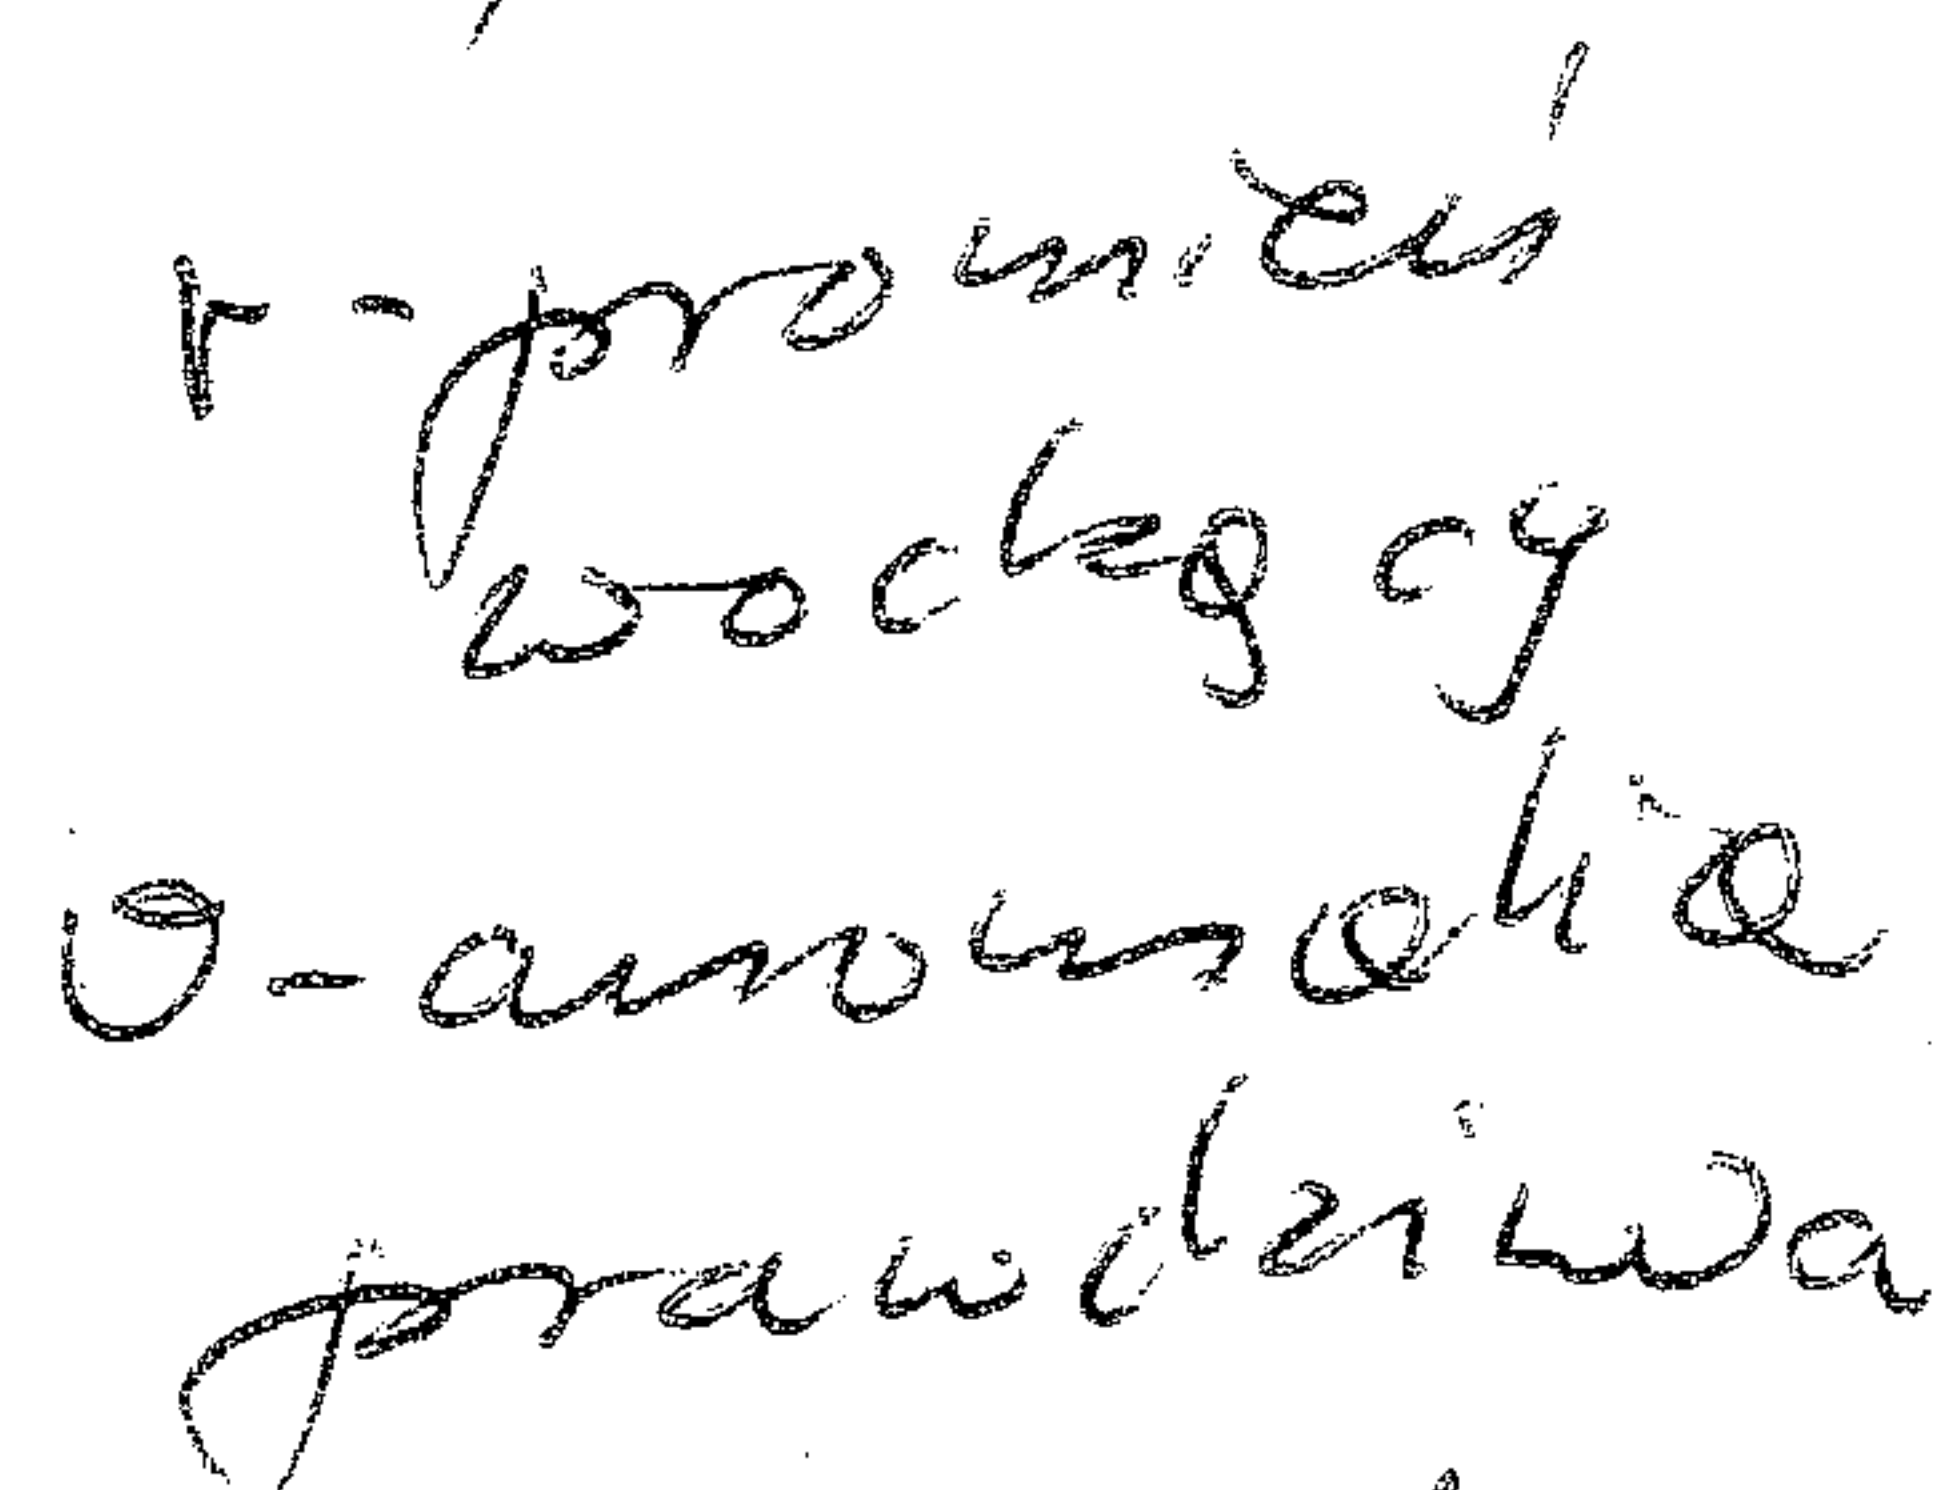 r - promień
wodzący
υ - anomalia
prawdziwa